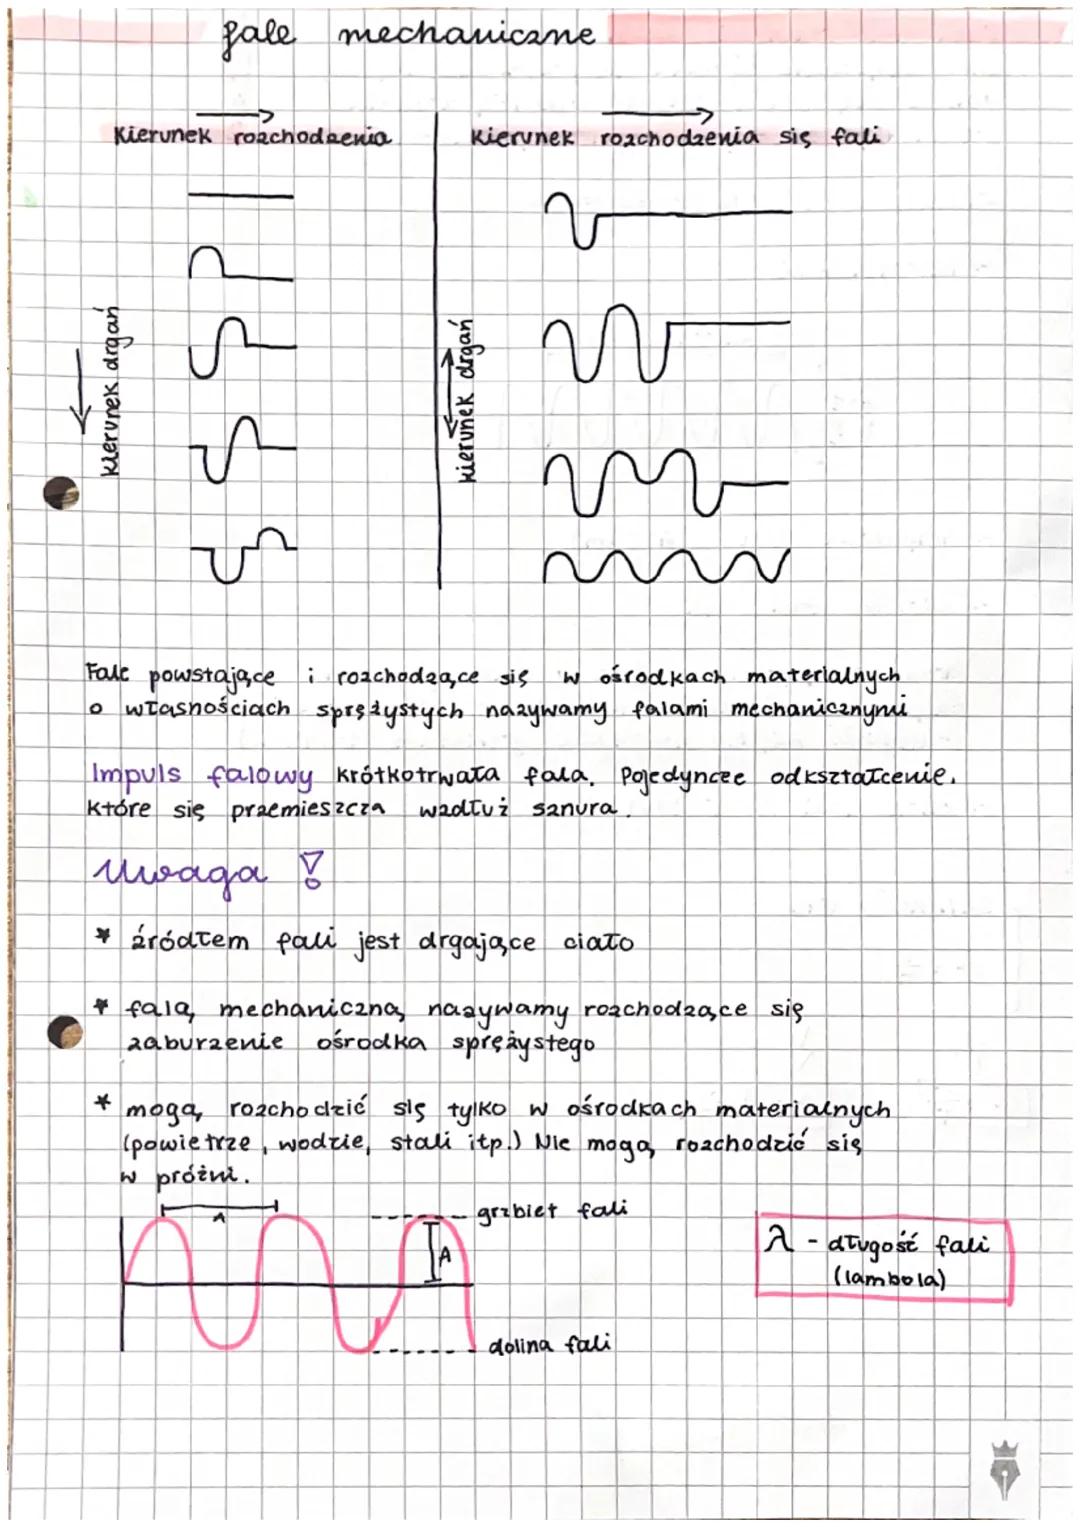 fale mechaniczne
Kierunek rozchodzenia
Kierunek rozchodzenia się fali
kierunek drgań
kierunek drgań
Fale powstające i rozchodzące się w ośrodkach materialnych
o własnościach sprężystych nazywamy falami mechanicznymi
Impuls falowy krótkotrwała fala. Pojedyncze odkształcenie.
które się przemieszcza wzdłuż sznura.
Uwaga !
* źródłem fali jest drgające ciało
* falą mechaniczną nazywamy rozchodzące się
zaburzenie ośrodka sprężystego
* mogą rozchodzić się tylko w ośrodkach materialnych
(powietrze, wodzie, stali itp.) Nie mogą rozchodzić się
w próżni.
grzbiet fali
A
A
λ - długość fali
(lambola)
dolina fali